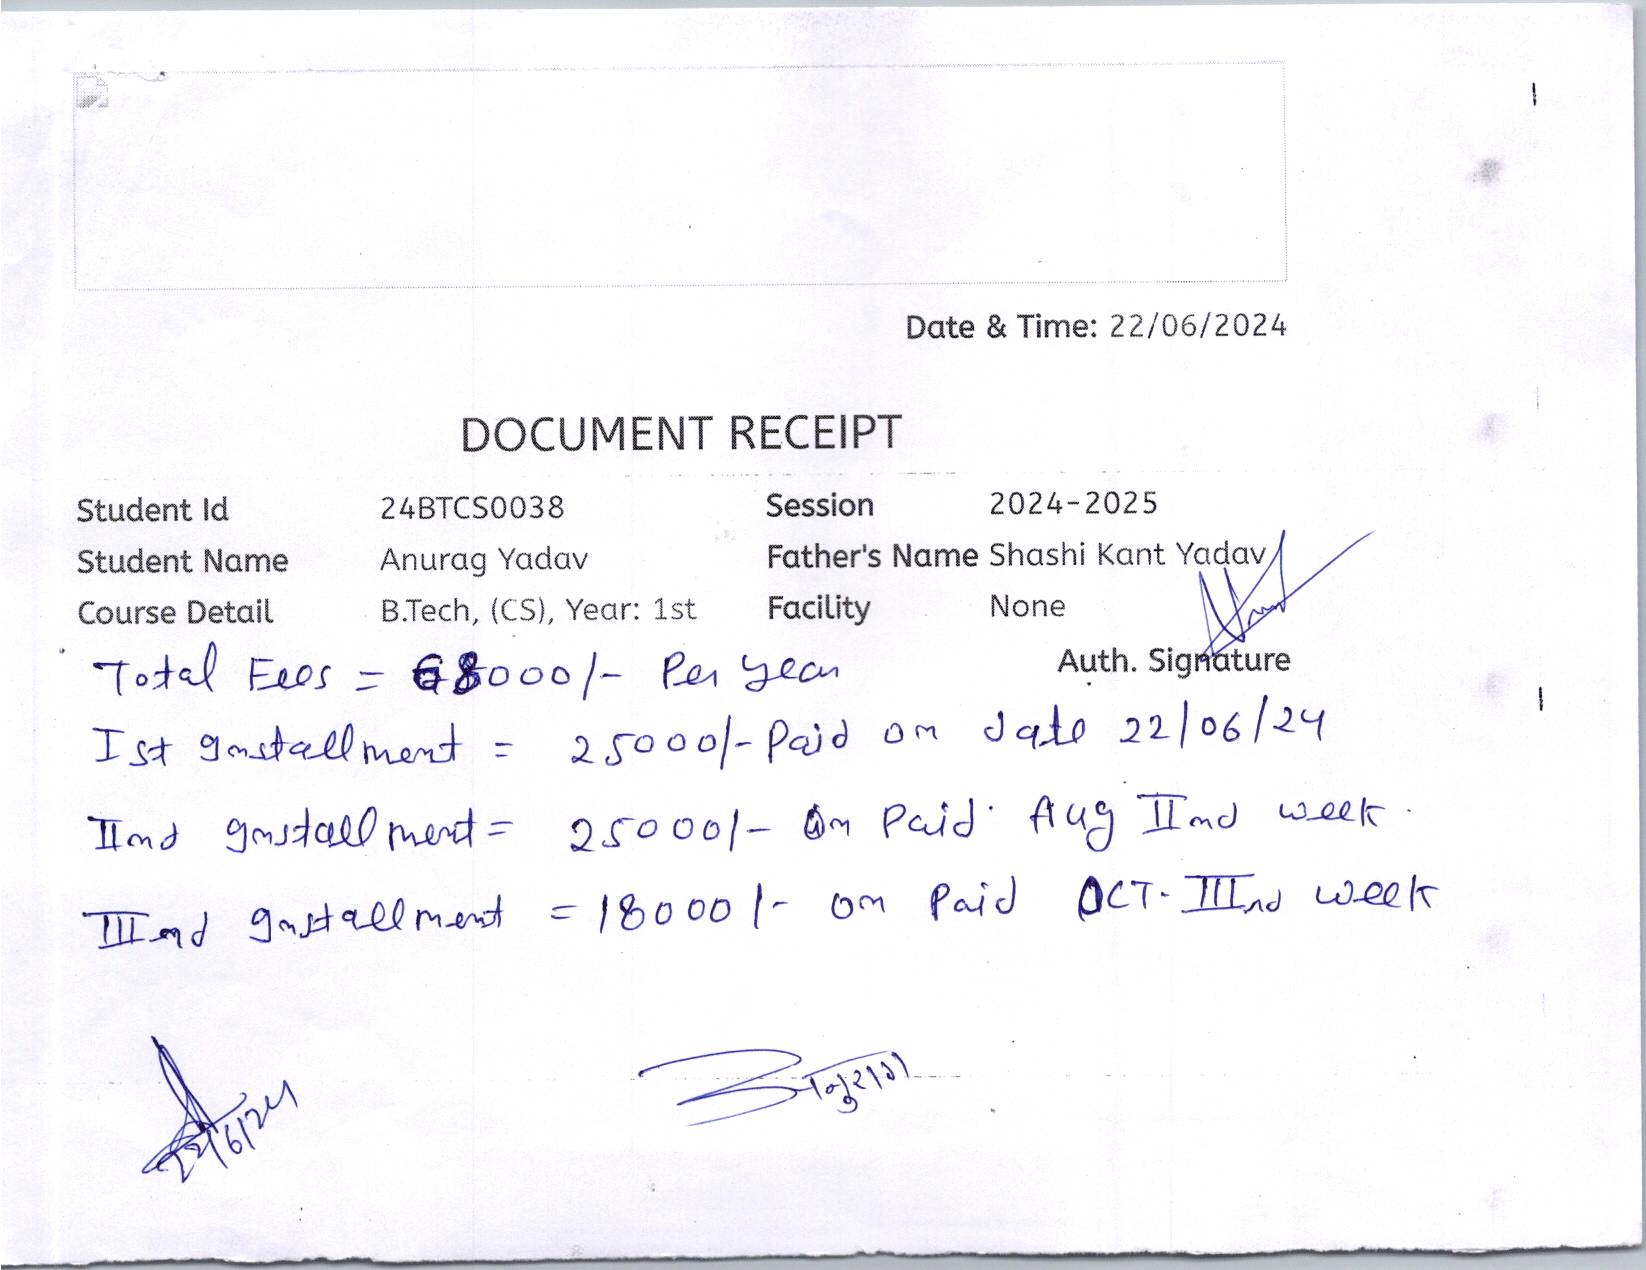 Date & Time: 22/06/2024
DOCUMENT RECEIPT
Student Id 24BTCS0038 Session 2024-2025
Student Name Anurag Yadav Father's Name Shashi Kant Yadav
Course Detail B.Tech, (CS), Year: 1st Facility None
Auth. Signature
Total Fees = 68000/- Per year
Ist Installment = 25000/- Paid on date 22/06/24
IInd Installment = 25000/- On Paid Aug IInd week.
IIInd Installment = 18000/- on Paid OCT. IIInd week
22/6/24
अनुराग